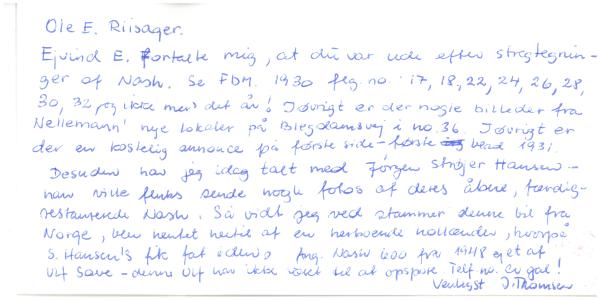 Ole E. Riisager.
Ejvind E. Fortalte mig, at du var ude efter stregtegnin-
ger af Nash. Se FDM. 1930 flg. no. 17, 18, 22, 24, 26, 28,
30, 32, og ikke mere det år! Iøvrigt er der nogle billeder fra
Nellemann' nye lokaler på Blegdamsvej i no. 36. Iøvrigt er
der en kostelig annonce på første side - første blad 1931.
Desuden har jeg idag talt med Jörgen Strőjer Hansen -
han ville flinks sende nogle fotos af deres åbne, færdig-
restaurerede Nash. Så vidt jeg ved stammer denne bil fra
Norge, blev hentet hertil af en herboende hollænder, hvorpå
S. Hansen's fik fat i den, Ang. Nash 600 fra 1948 ejet af
Ulf Save - denne Ulf har ikke været til at opspore. Telf no. er gal!
Venligst J. Thomsen